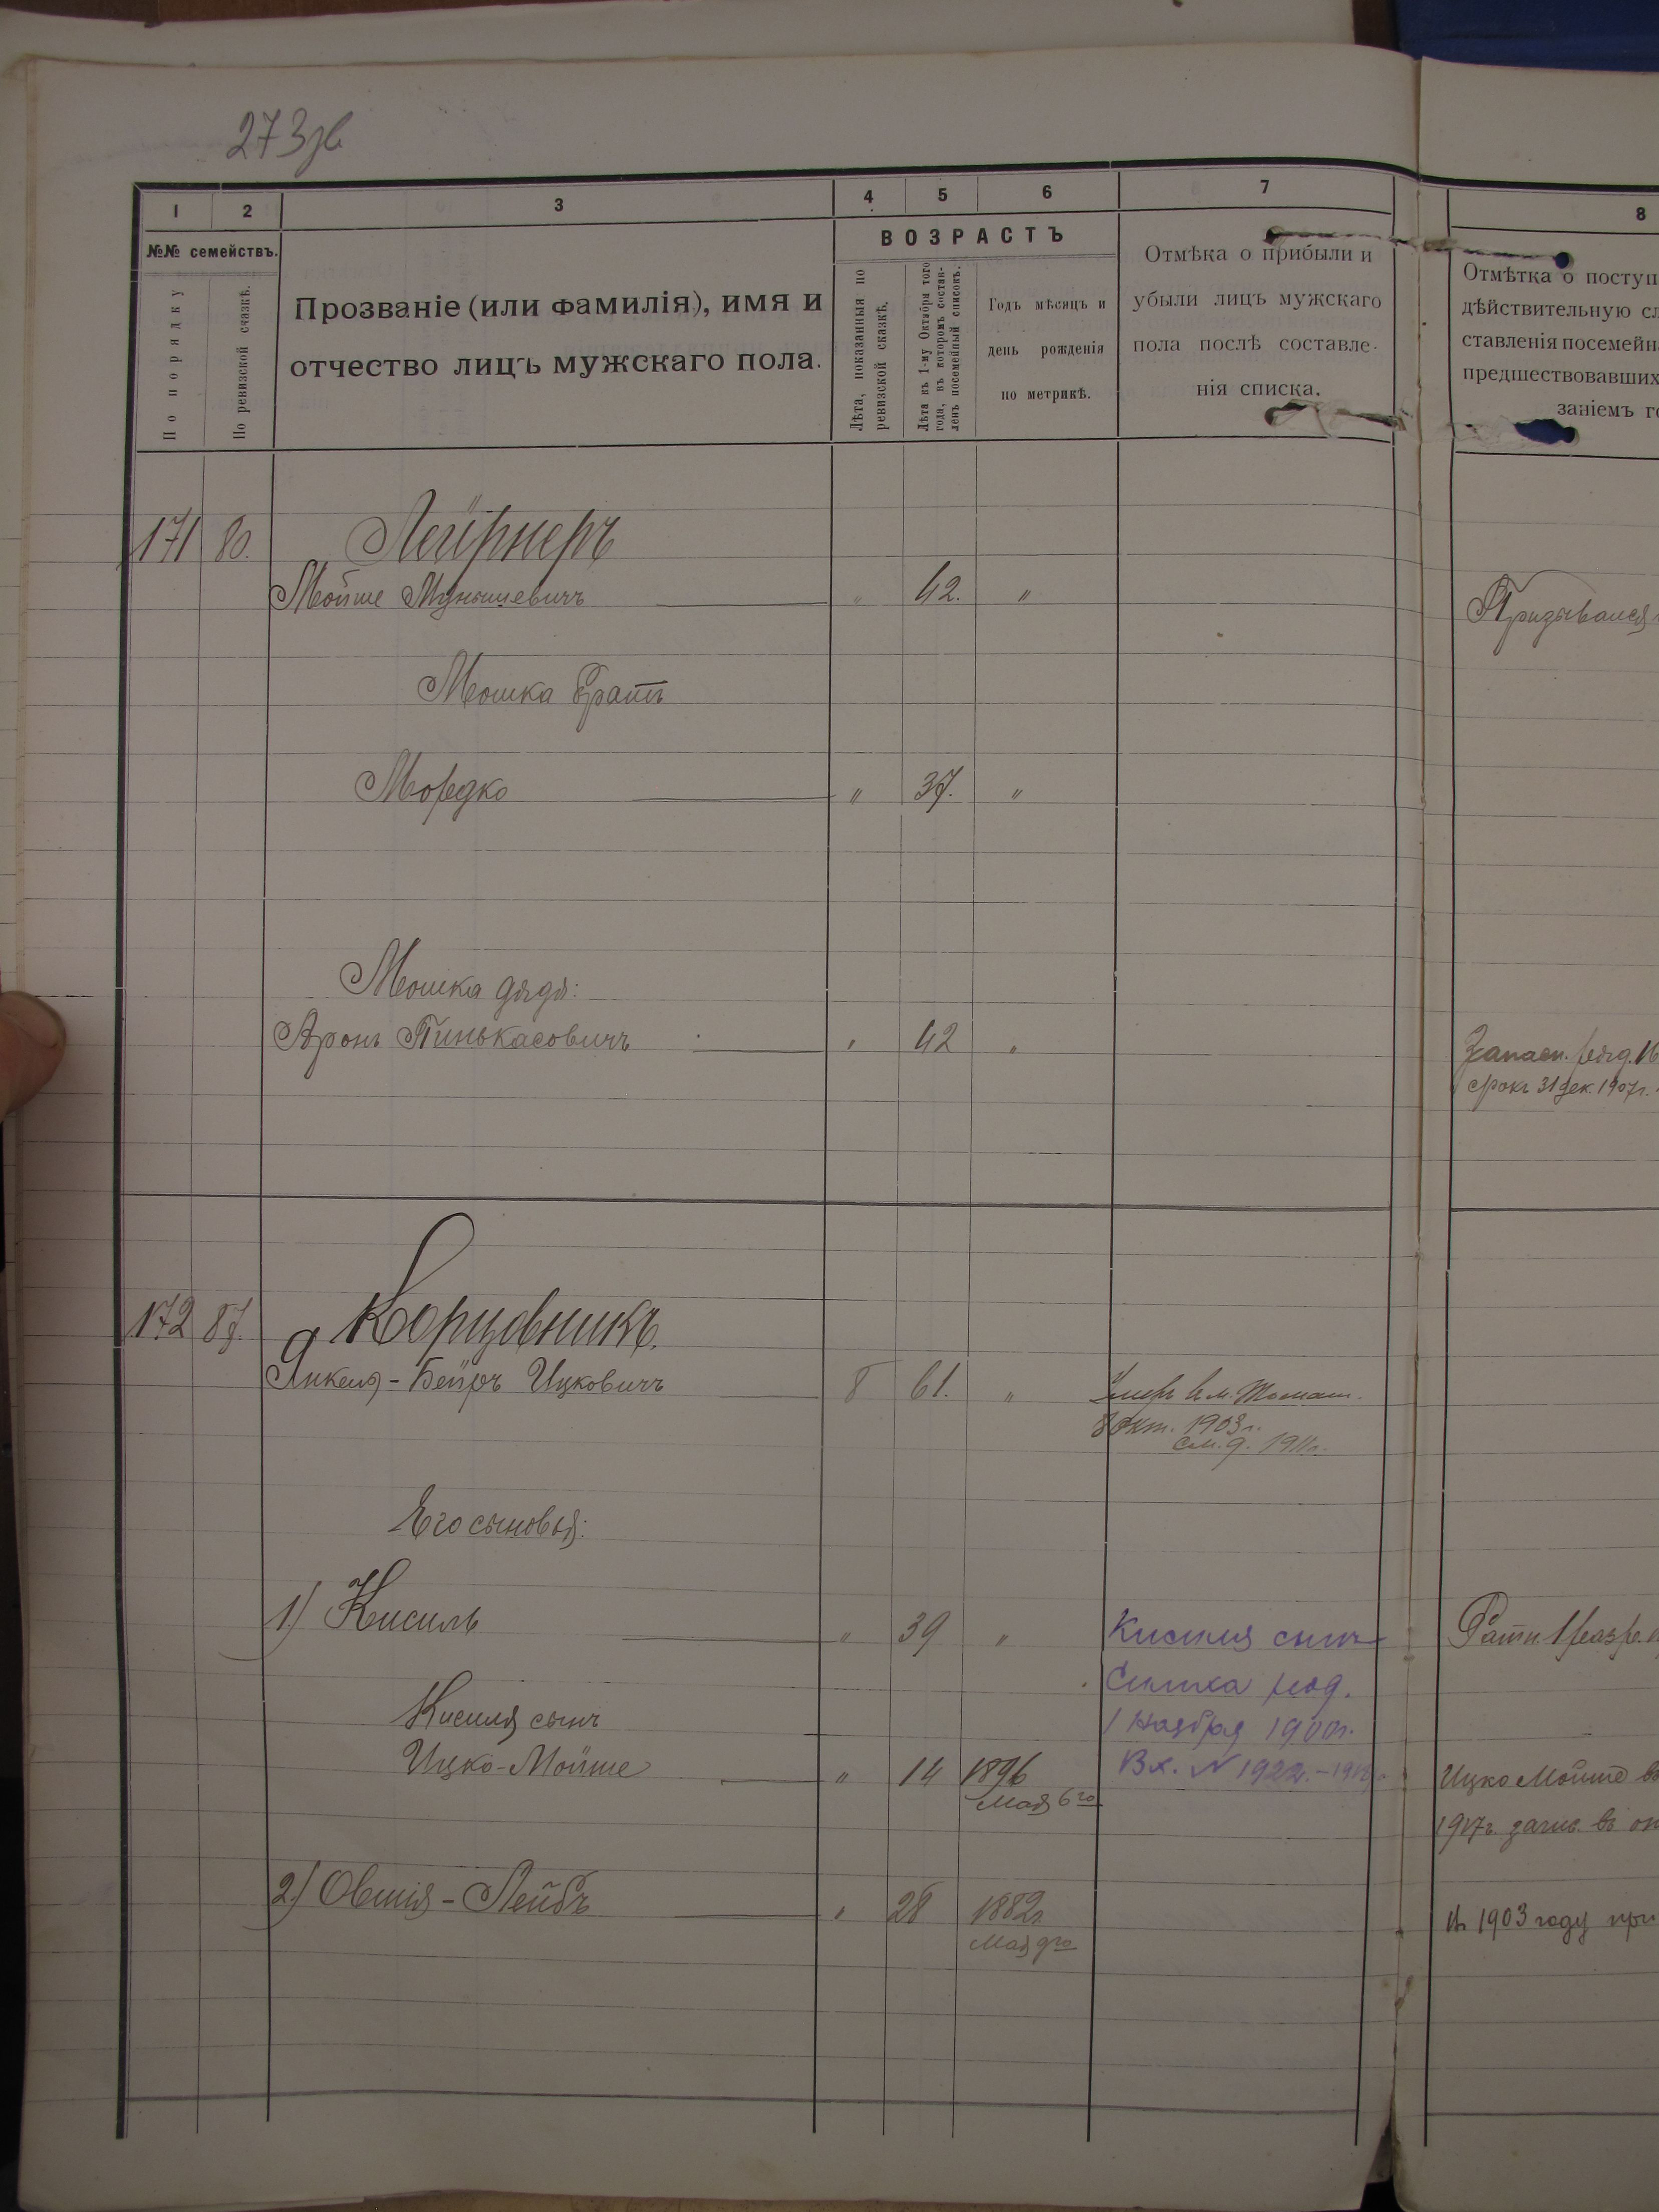 273зв
1 2 3 4 5 6 7 8
№№ семействъ.
По порядку
По ревизской сказкѣ.
Прозваніе (или фамилія), имя и
отчество лицъ мужскаго пола.
ВОЗРАСТЪ
Лѣта, показанныя по
ревизской сказкѣ.
Лѣта къ 1-му Октября того
года, въ которомъ состав-
ленъ посемейный списокъ.
Годъ мѣсяцъ и
день рожденія
по метрикѣ.
Отмѣка о прибыли и
убыли лицъ мужскаго
пола послѣ составле-
нія списка.
Отмѣтка о поступ
дѣйствительную сл
ставленія посемейн
предшествовавших
заніемъ го
171 80. Лейрнеръ
Мойше Мунышевичъ " 42. "
Призывался
Мошка братъ
Мордко " 37. "
Мошка дядя:
Аронъ Пинькасовичъ " 42 "
Запасн. ряд. 16
срокъ 31 дек. 1907г.
172 87. Корцовникъ.
Янкель-Бейръ Ицковичъ 8 61. "
Умеръ в м. Томаш.
8 Окт. 1903г.
см. д. 1911г.
Его сыновья:
1) Кисиль " 39 "
Кисиля сынъ
Ратн. 1 разр.
род.
1 Ноября 1900г.
Кисиля сынъ
Ицко-Мойше " 14 1896
Мая 6го
Вх. № 1922.-191
Ицко Мойше въ
1917г. зачис. въ оп
2) Овшія-Лейбъ " 28 1882г
Мая 9го
Въ 1903 году при